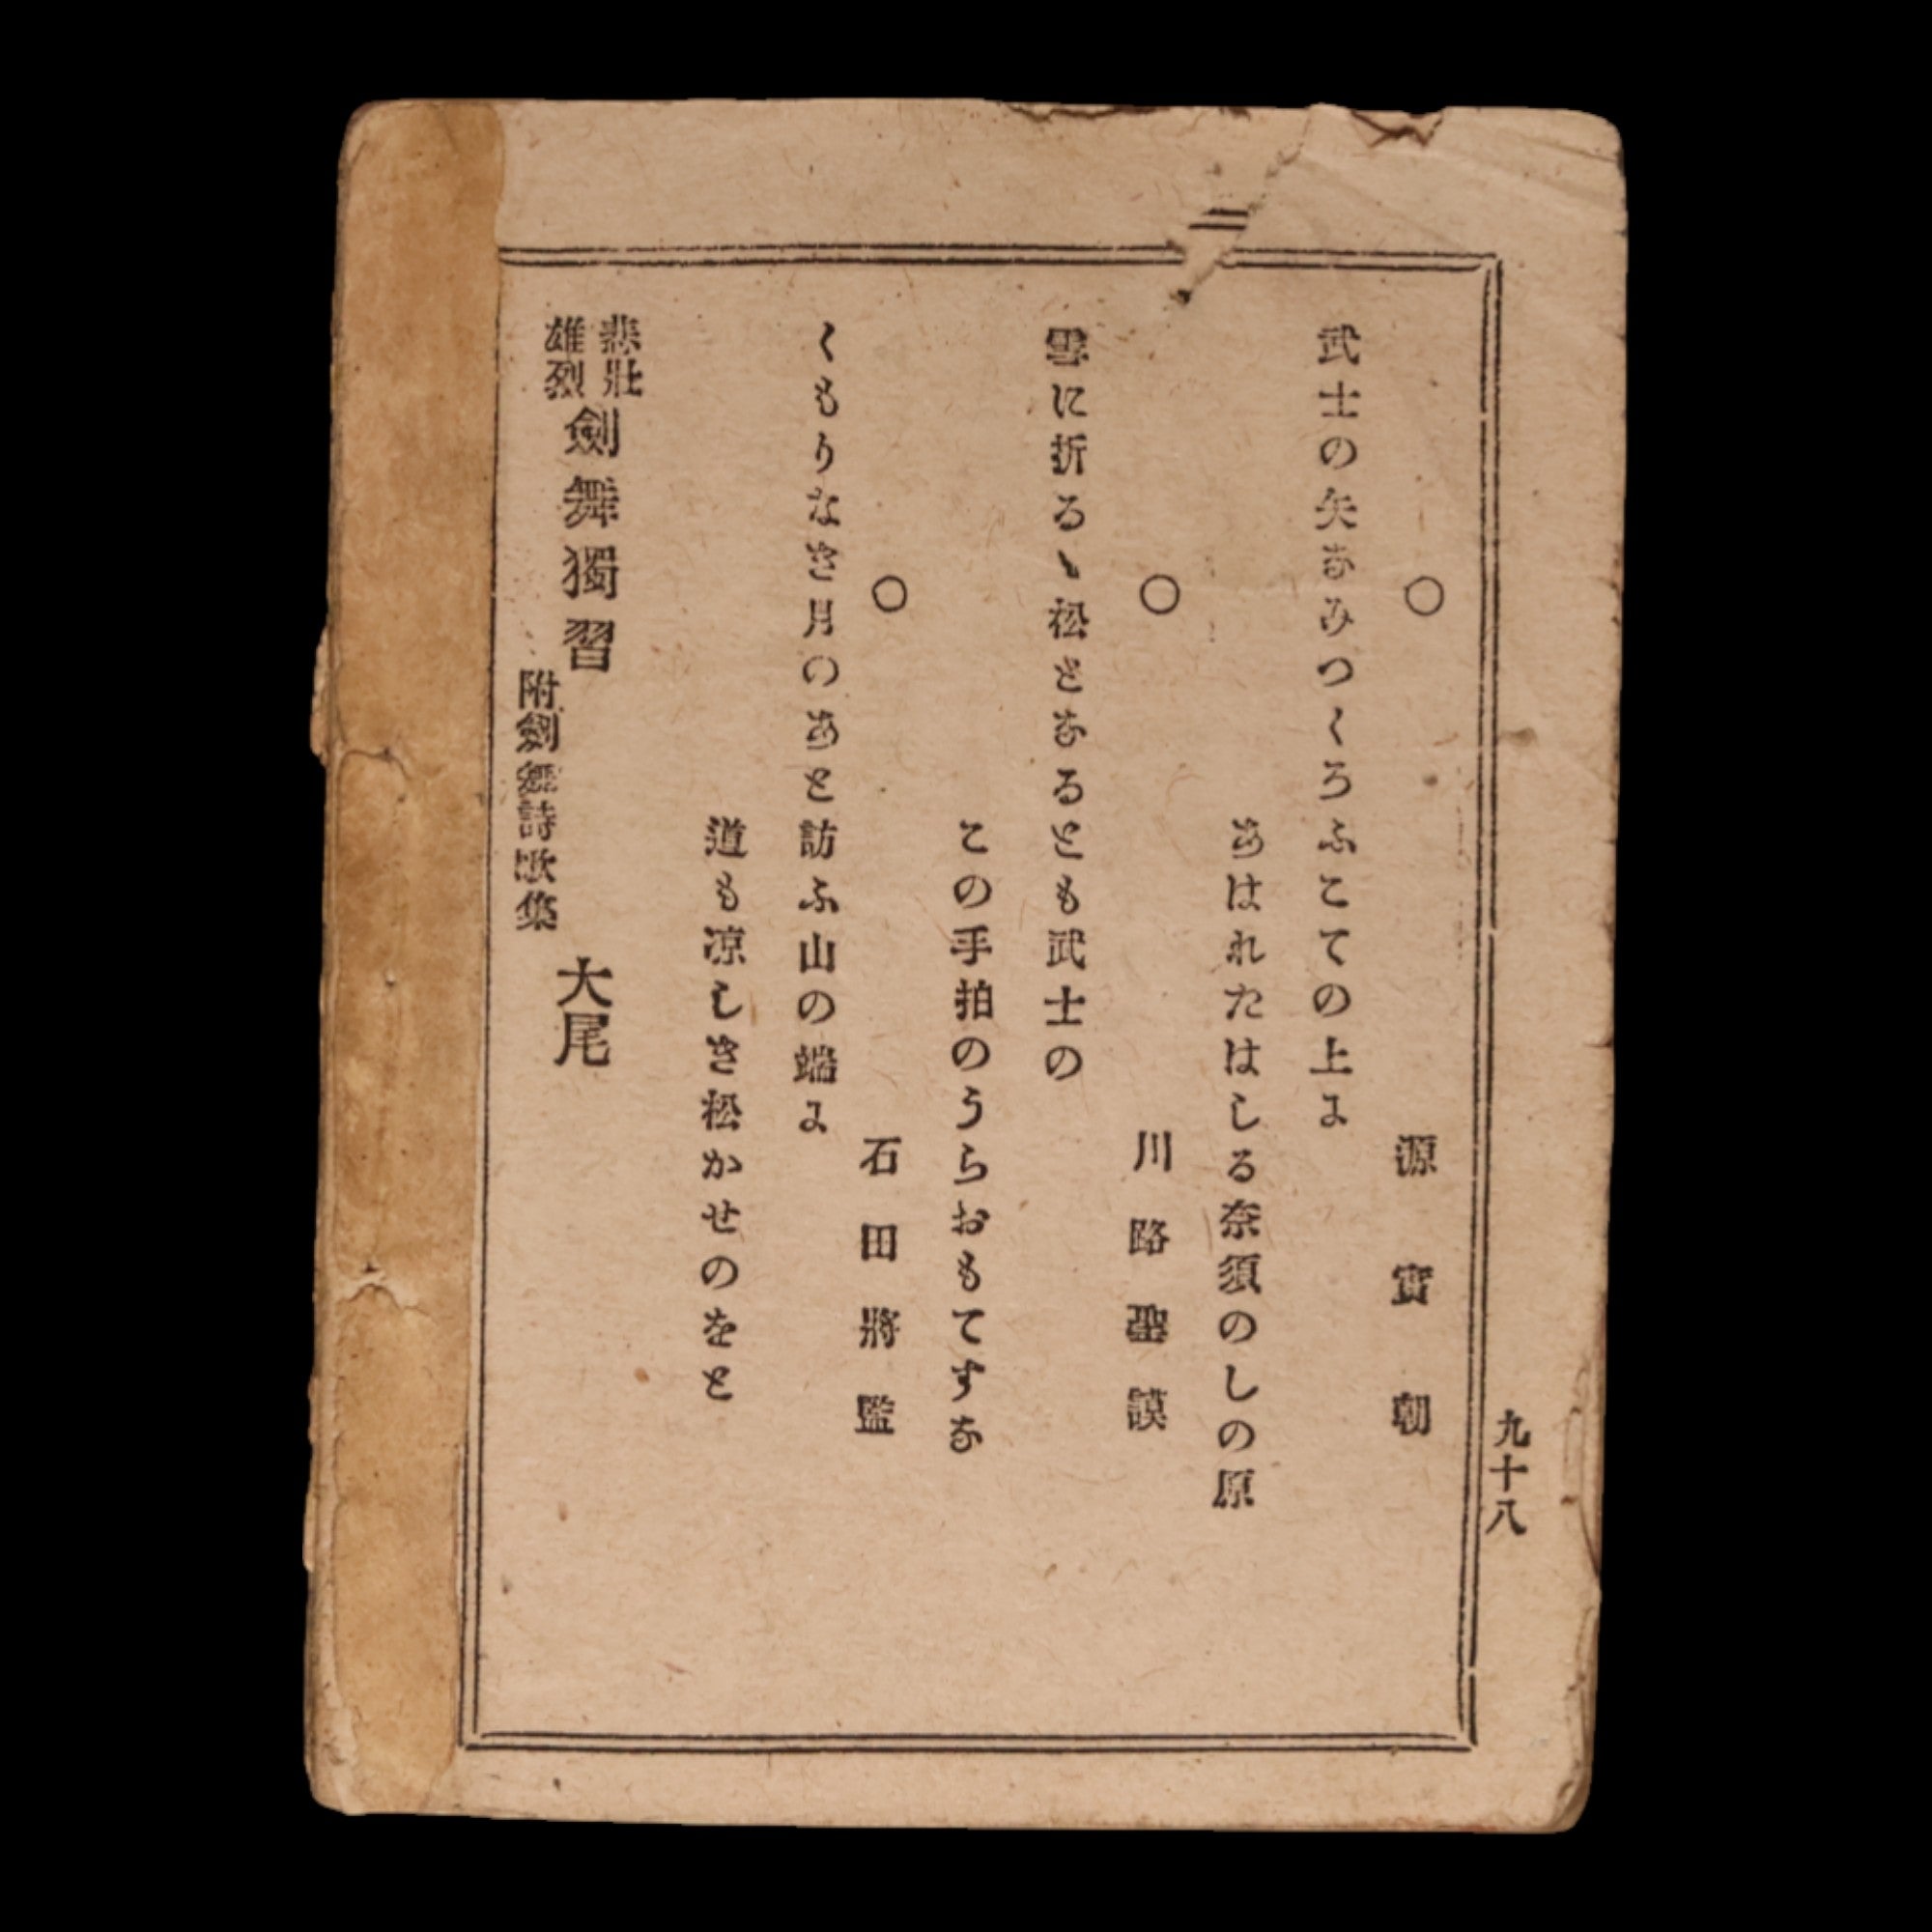 九十八
○　源實朝
武士の矢なみつくろふこての上に
あはれたはしる奈須のしの原
○　川路聖謨
雪に折るゝ松となるとも武士の
この手拍のうらおもてすな
○　石田將監
くもりなき月のあと訪ふ山の端に
道も凉しき松かせのをと
悲壯雄烈 劍舞獨習 附劍舞詩歌集 大尾